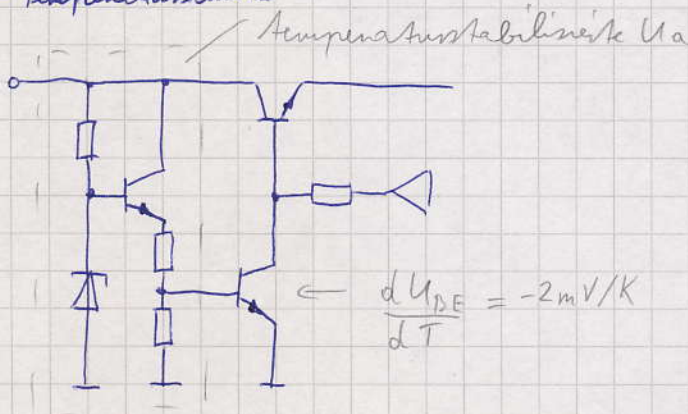 temperaturstabilisierte Ua
dU_BE / dT = -2mV/K